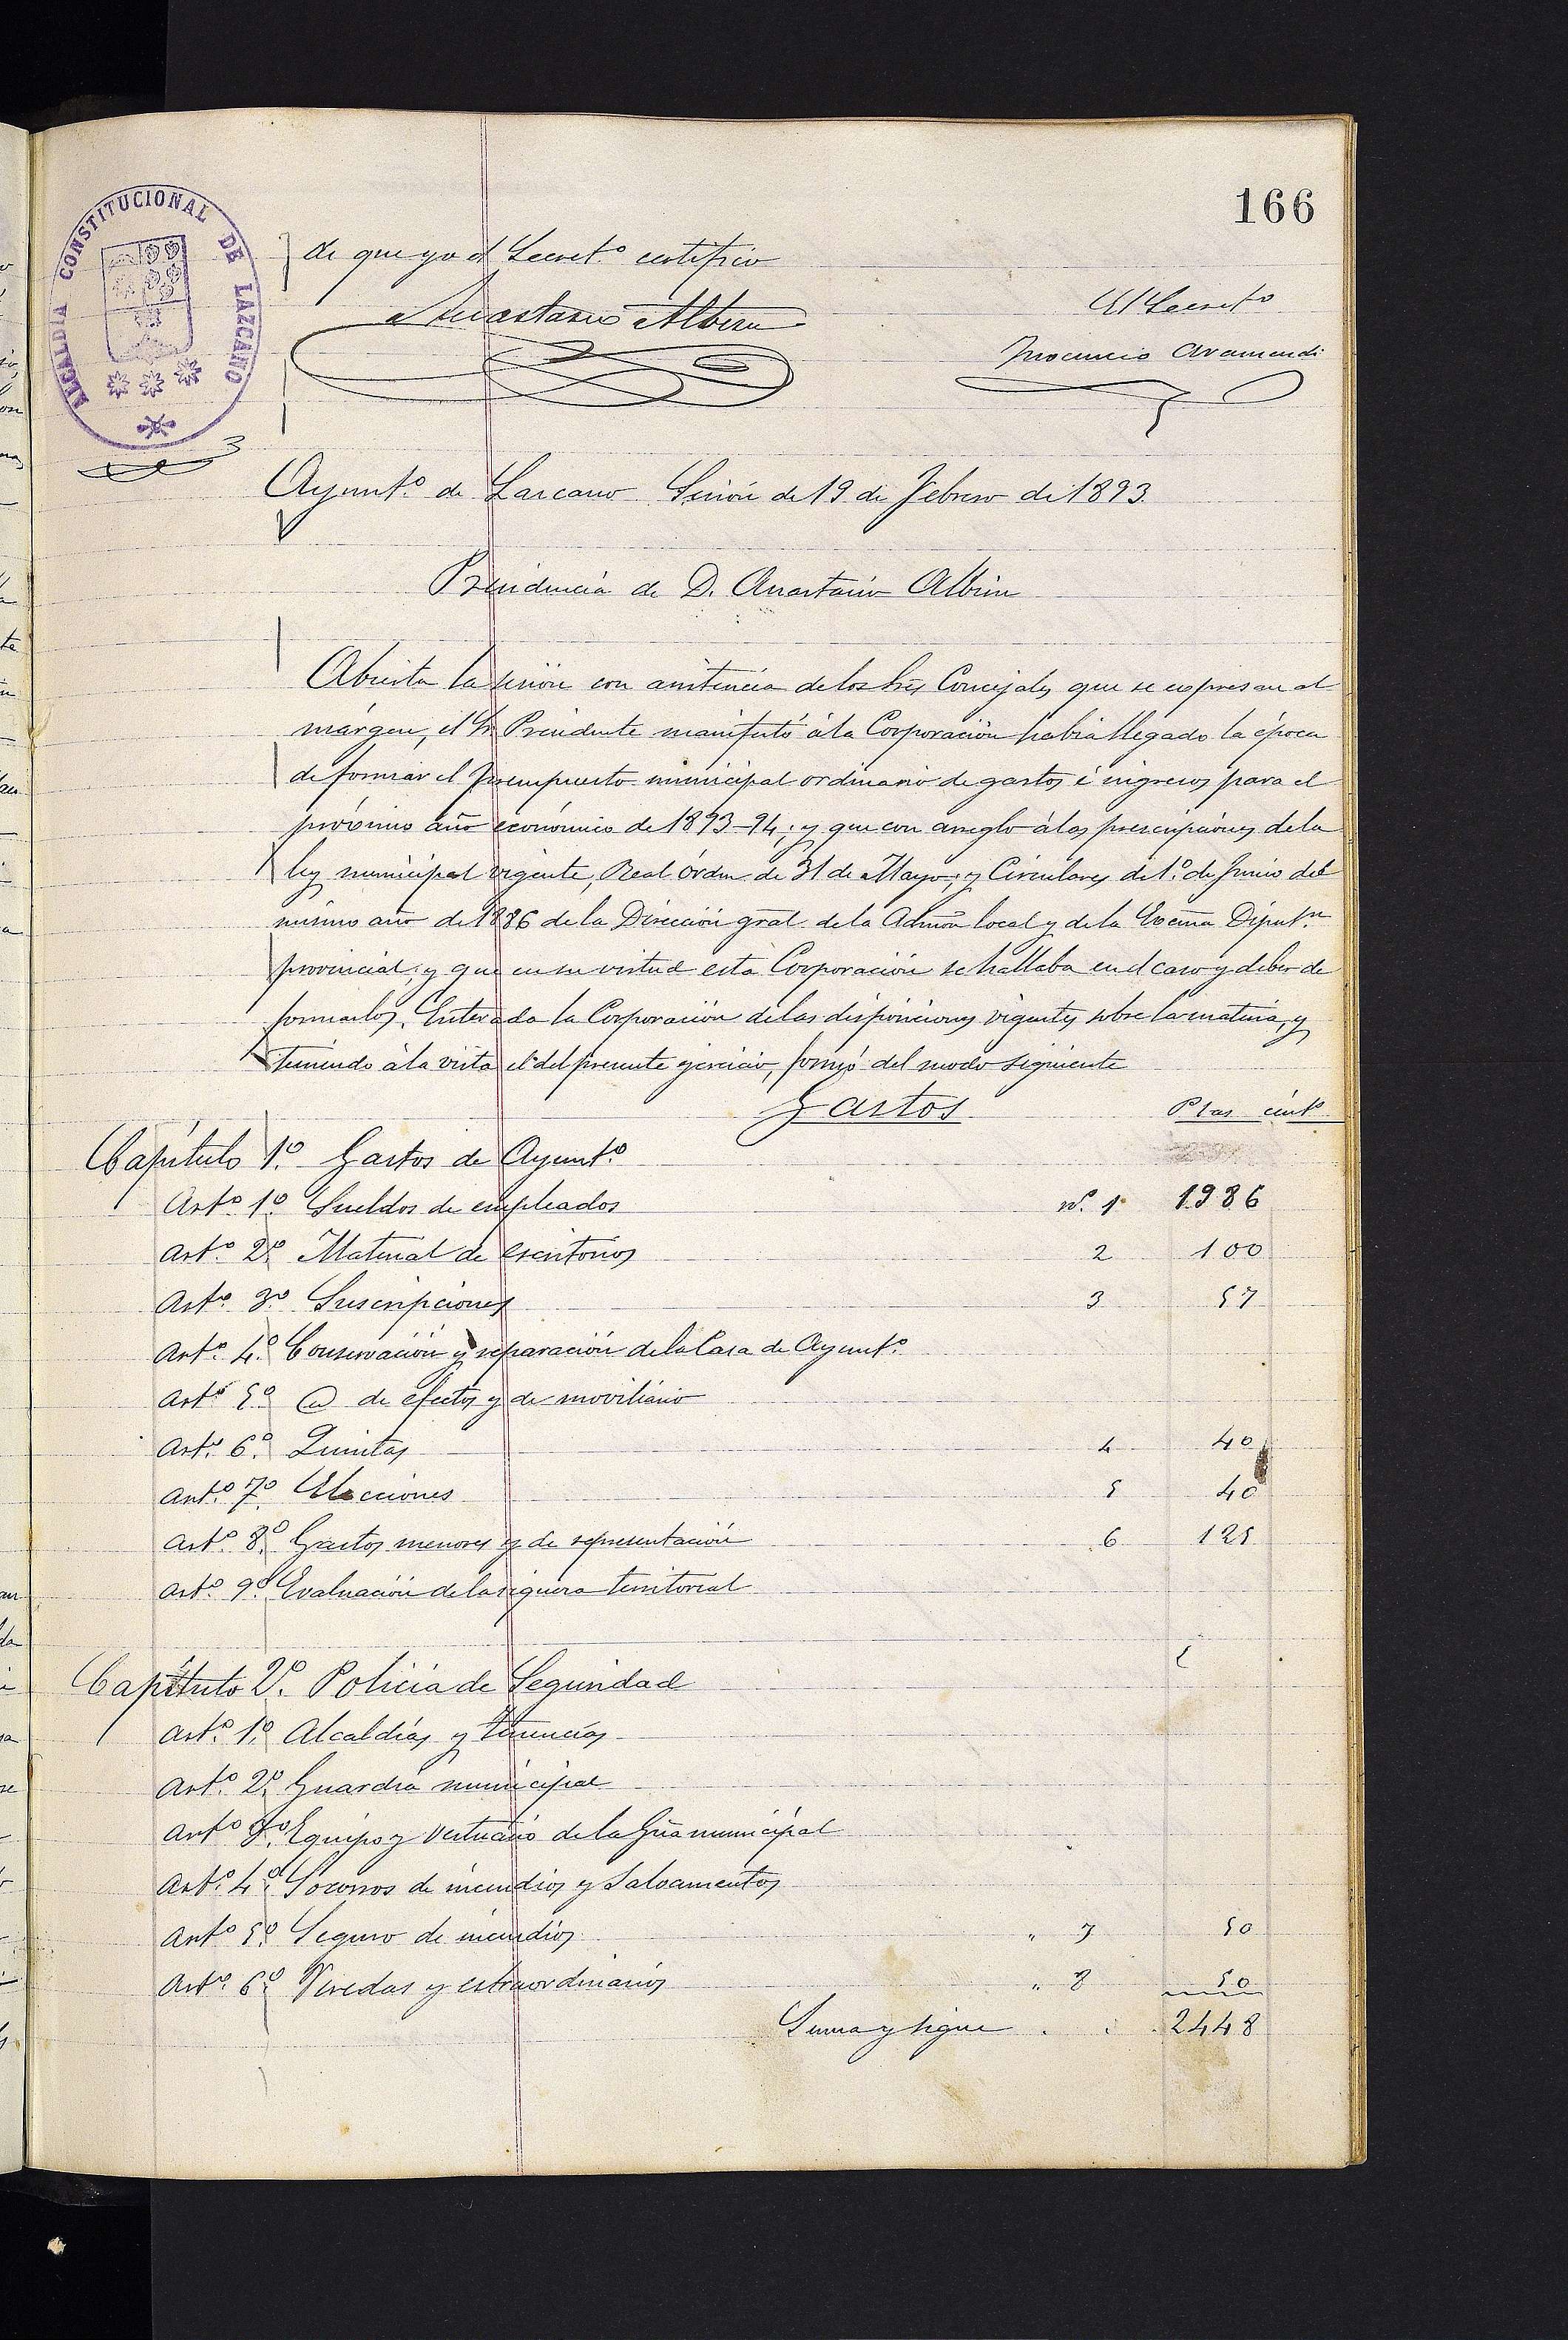 166
ALCALDIA CONSTITUCIONAL DE LAZCANO
de que yo el Secret.º certifico
Anastasio Albisu
El Secret.º
Inocencio Aramendi
Ayunt.º de Lazcano Sesión de 19 de Febrero de 1893
Presidencia de D. Anastasio Albisu
Abierta la sesión con asistencia de los Sres Concejales que se expresan al
márgen, el Sr. Presidente manifestó á la Corporación había llegado la época
de formar el presupuesto municipal ordinario de gastos é ingresos para el
próximo año económico de 1893-94; y que con arreglo á las prescripciones de la
ley municipal vigente, Real órden de 31 de Mayo, y Circulares de 1.º de Junio del
mismo año de 1886 de la Dirección gral de la Admón local y de la Excma Diput.n
provincial; y que en su virtud esta Corporación se hallaba en el caso y deber de
formarlos. Enterada la Corporación de las disposiciones vigentes sobre la materia, y
teniendo á la vista el del presente ejercicio, formó del modo siguiente
Gastos Ptas cént.s
Capítulo 1.º Gastos de Ayunt.º
Art.º 1.º Sueldos de empleados n.º 1 1986
Art.º 2.º Material de escritorios 2 100
Art.º 3.º Suscripciones 3 57
Art.º 4.º Conservación y reparación de la Casa de Ayunt.º
Art.º 5.º @ de efectos y de moviliario
Art.º 6.º Quintas 4 40
Art.º 7.º Elecciones 5 40
Art.º 8.º Gastos menores y de representación 6 125
Art.º 9.º Evaluación de la riquera territorial
Capítulo 2.º Policía de Seguridad
Art.º 1.º Alcaldías y tenencias
Art.º 2.º Guardia municipal
Art.º 3.º Equipo y vestuario de la Gia municipal
Art.º 4.º Socorros de incendios y Salvamentos
Art.º 5.º Seguro de incendios " 7 50
Art.º 6.º Veredas y estraordinarios " 8 50
Suma y sigue . . . 2448